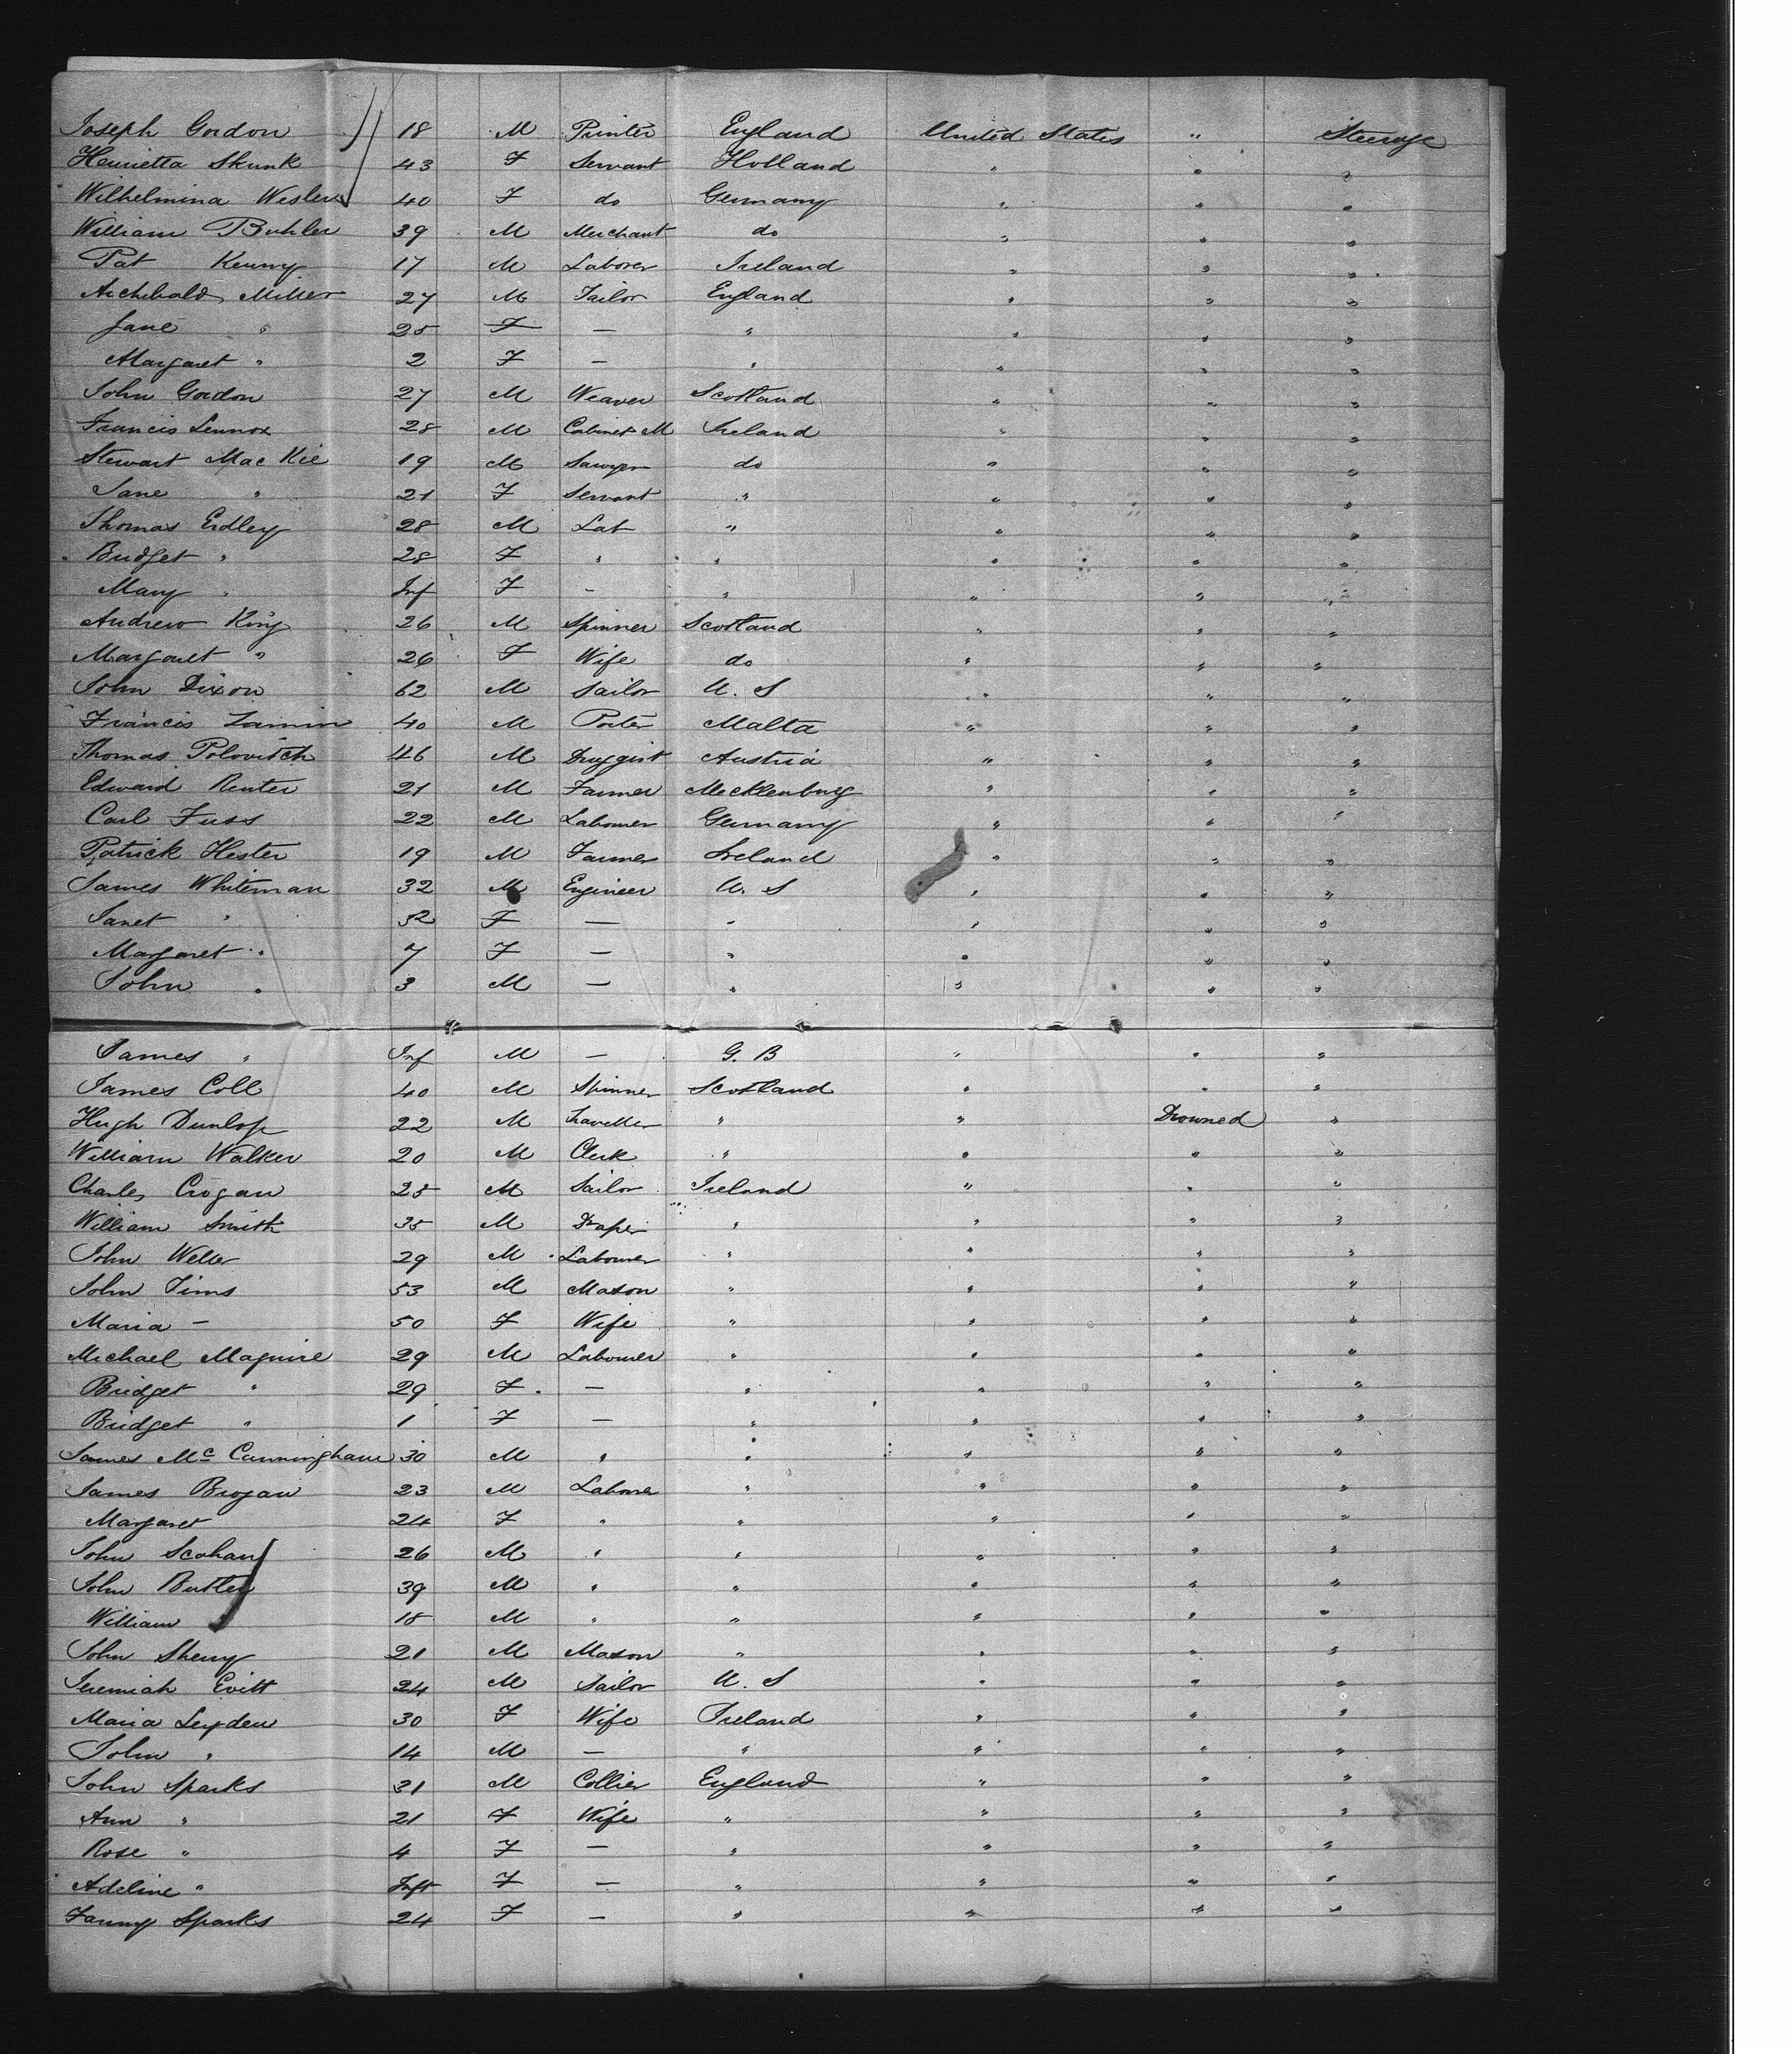 Joseph Gordon 18 M Printer England United States " Steerage
Henrietta Skunk 43 F Servant Holland " " "
Wilhelmina Wesler 40 F do Germany " " "
William Buhler 39 M Merchant do " " "
Pat Kenny 17 M Laborer Ireland " " "
Archibald Miller 27 M Tailor England " " "
Jane " 25 F — " " " "
Margaret " 2 F — " " " "
John Gordon 27 M Weaver Scotland " " "
Francis Lennox 28 M Cabinet M Ireland " " "
Stewart Mac Kie 19 M Sawyer do " " "
Jane " 21 F Servant " " " "
Thomas Erdley 28 M Lab " " " "
Bridget " 28 F " " " " "
Mary " Inf F - " " " "
Andrew King 26 M Spinner Scotland " " "
Margaret " 26 F Wife do " " "
John Dixon 62 M Sailor U. S " " "
Francis 40 M Porter Malta " " "
Thomas Polovitch 46 M Druggist Austria " " "
Edward Reuter 21 M Farmer Mecklenburg " " "
Carl Fuss 22 M Labourer Germany " " "
Patrick Hester 19 M Farmer Ireland " " "
James Whiteman 32 M Engineer U. S " " "
Janet " 32 F — " " " "
Margaret " 7 F — " " " "
John " 3 M — " " " "
James " Inf M — G. B " " "
James Coll 40 M Spinner Scotland " " "
Hugh Dunlop 22 M Traveller " " Drowned "
William Walker 20 M Clerk " " " "
Charles Crogan 25 M Sailor Ireland " " "
William Smith 35 M Draper " " " "
John Weller 29 M Labourer " " " "
John Tims 53 M Mason " " " "
Maria - 50 F Wife " " " "
Michael Maguire 29 M Labourer " " " "
Bridget " 29 F — " " " "
Bridget " 1 F — " " " "
James Mc Cunningham 30 M " " " " "
James Brogan 23 M Laborer " " " "
Margaret 24 F " " " " "
John Scahan 26 M " " " " "
John Butler 39 M " " " " "
William 18 M " " " " "
John Sherry 21 M Mason " " " "
Jeremiah Evitt 24 M Sailor U. S " " "
Maria Leyden 30 F Wife Ireland " " "
John " 14 M — " " " "
John Sparks 31 M Collier England " " "
Ann " 21 F Wife " " " "
Rose " 4 F — " " " "
Adeline " Inft F — " " " "
Fanny Sparks 24 F — " " " "